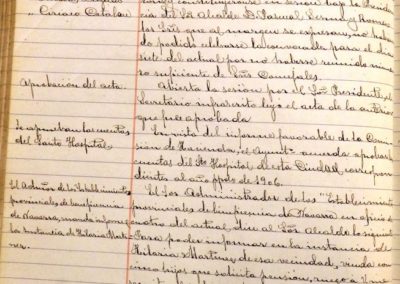 o Ciriaco Catalan
cia del Sr. Alcalde D. Pascual Serna y los señores
que al margen se expresan, no habien
do podido celebrarse la convocada para el dia
siete del actual por no haberse reunido núme
ro suficiente de Sres. Concejales.
Aprobación del acta.
Abierta la sesión por el Sr. Presidente, el
Secretario infrascrito leyó el acta de la anterior
que fué aprobada.
Se aprueban las cuentas
del Santo Hospital.
En vista del informe favorable de la Comi
sión de Hacienda, el Ayuntº acuerda aprobar las
cuentas del Sto. Hospital de esta Ciudad, correspon
dientes al año ppdo. de 1906.
El Admor. de los Establecimientos
provinciales de beneficencia
de Navarra, manda informe
la instancia de Hilaria Martí
nez.
El Sr. Administrador de los "Establecimientos
provinciales de beneficencia de Navarra en oficio de
cuatro del actual, dice al Sr. Alcalde lo siguiente
"Para poder informar en la instancia de
Hilaria Martinez, de esa vecindad, viuda con
cinco hijos que solicita pensión, ruego á V. me